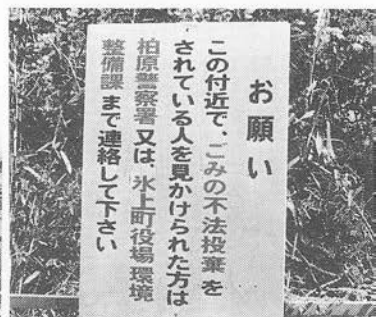 お願い
この付近で、ごみの不法投棄を
されている人を見かけられた方は
柏原警察署又は、氷上町役場環境
整備課まで連絡して下さい